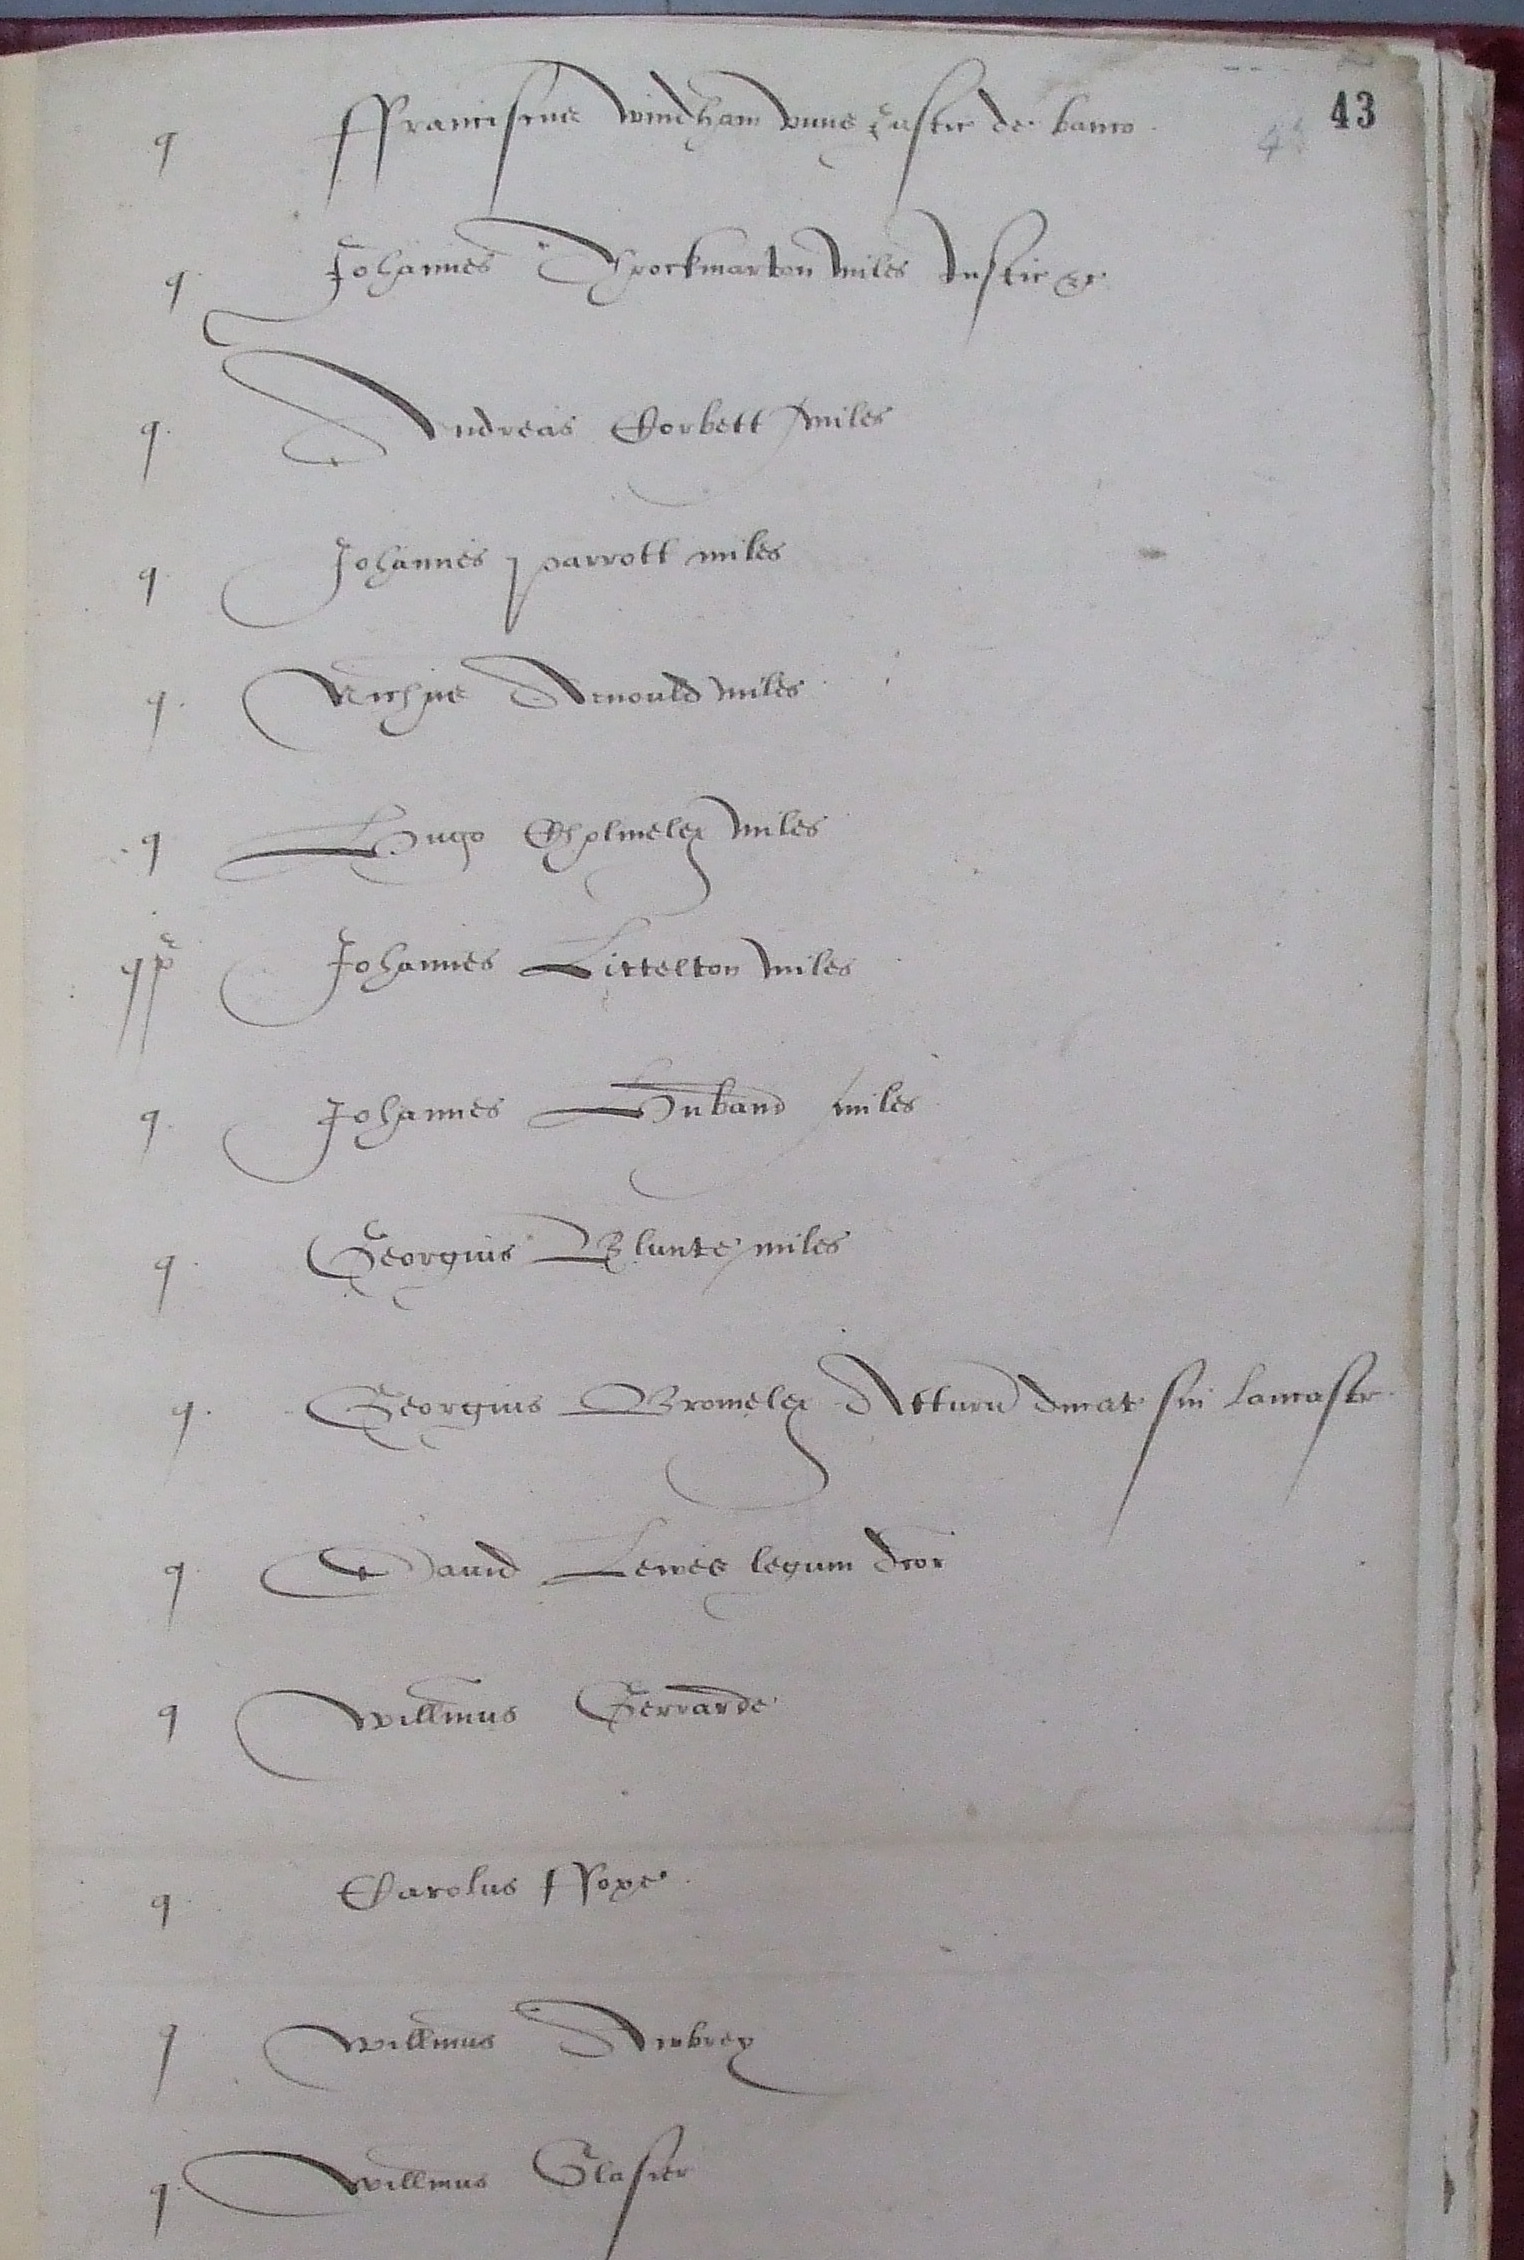 43
q ffranciscus Windham vnus Justic de banco
q Johannes Throckmarton miles Justic &c
q Andreas Corbett miles
q Johannes parrott miles
q Nichus Arnould miles
q Hugo Cholmeley miles
qp Johannes Littelton miles
q Johannes Huband miles
q Georgius Blunte miles
q Georgius Bromeley Atturn ducat sui Lancastr
q Dauid Lewes legum dcor
q Willmus Gerrarde
q Carolus ffoxe
q Willmus Awbrey
q Willmus Glasier